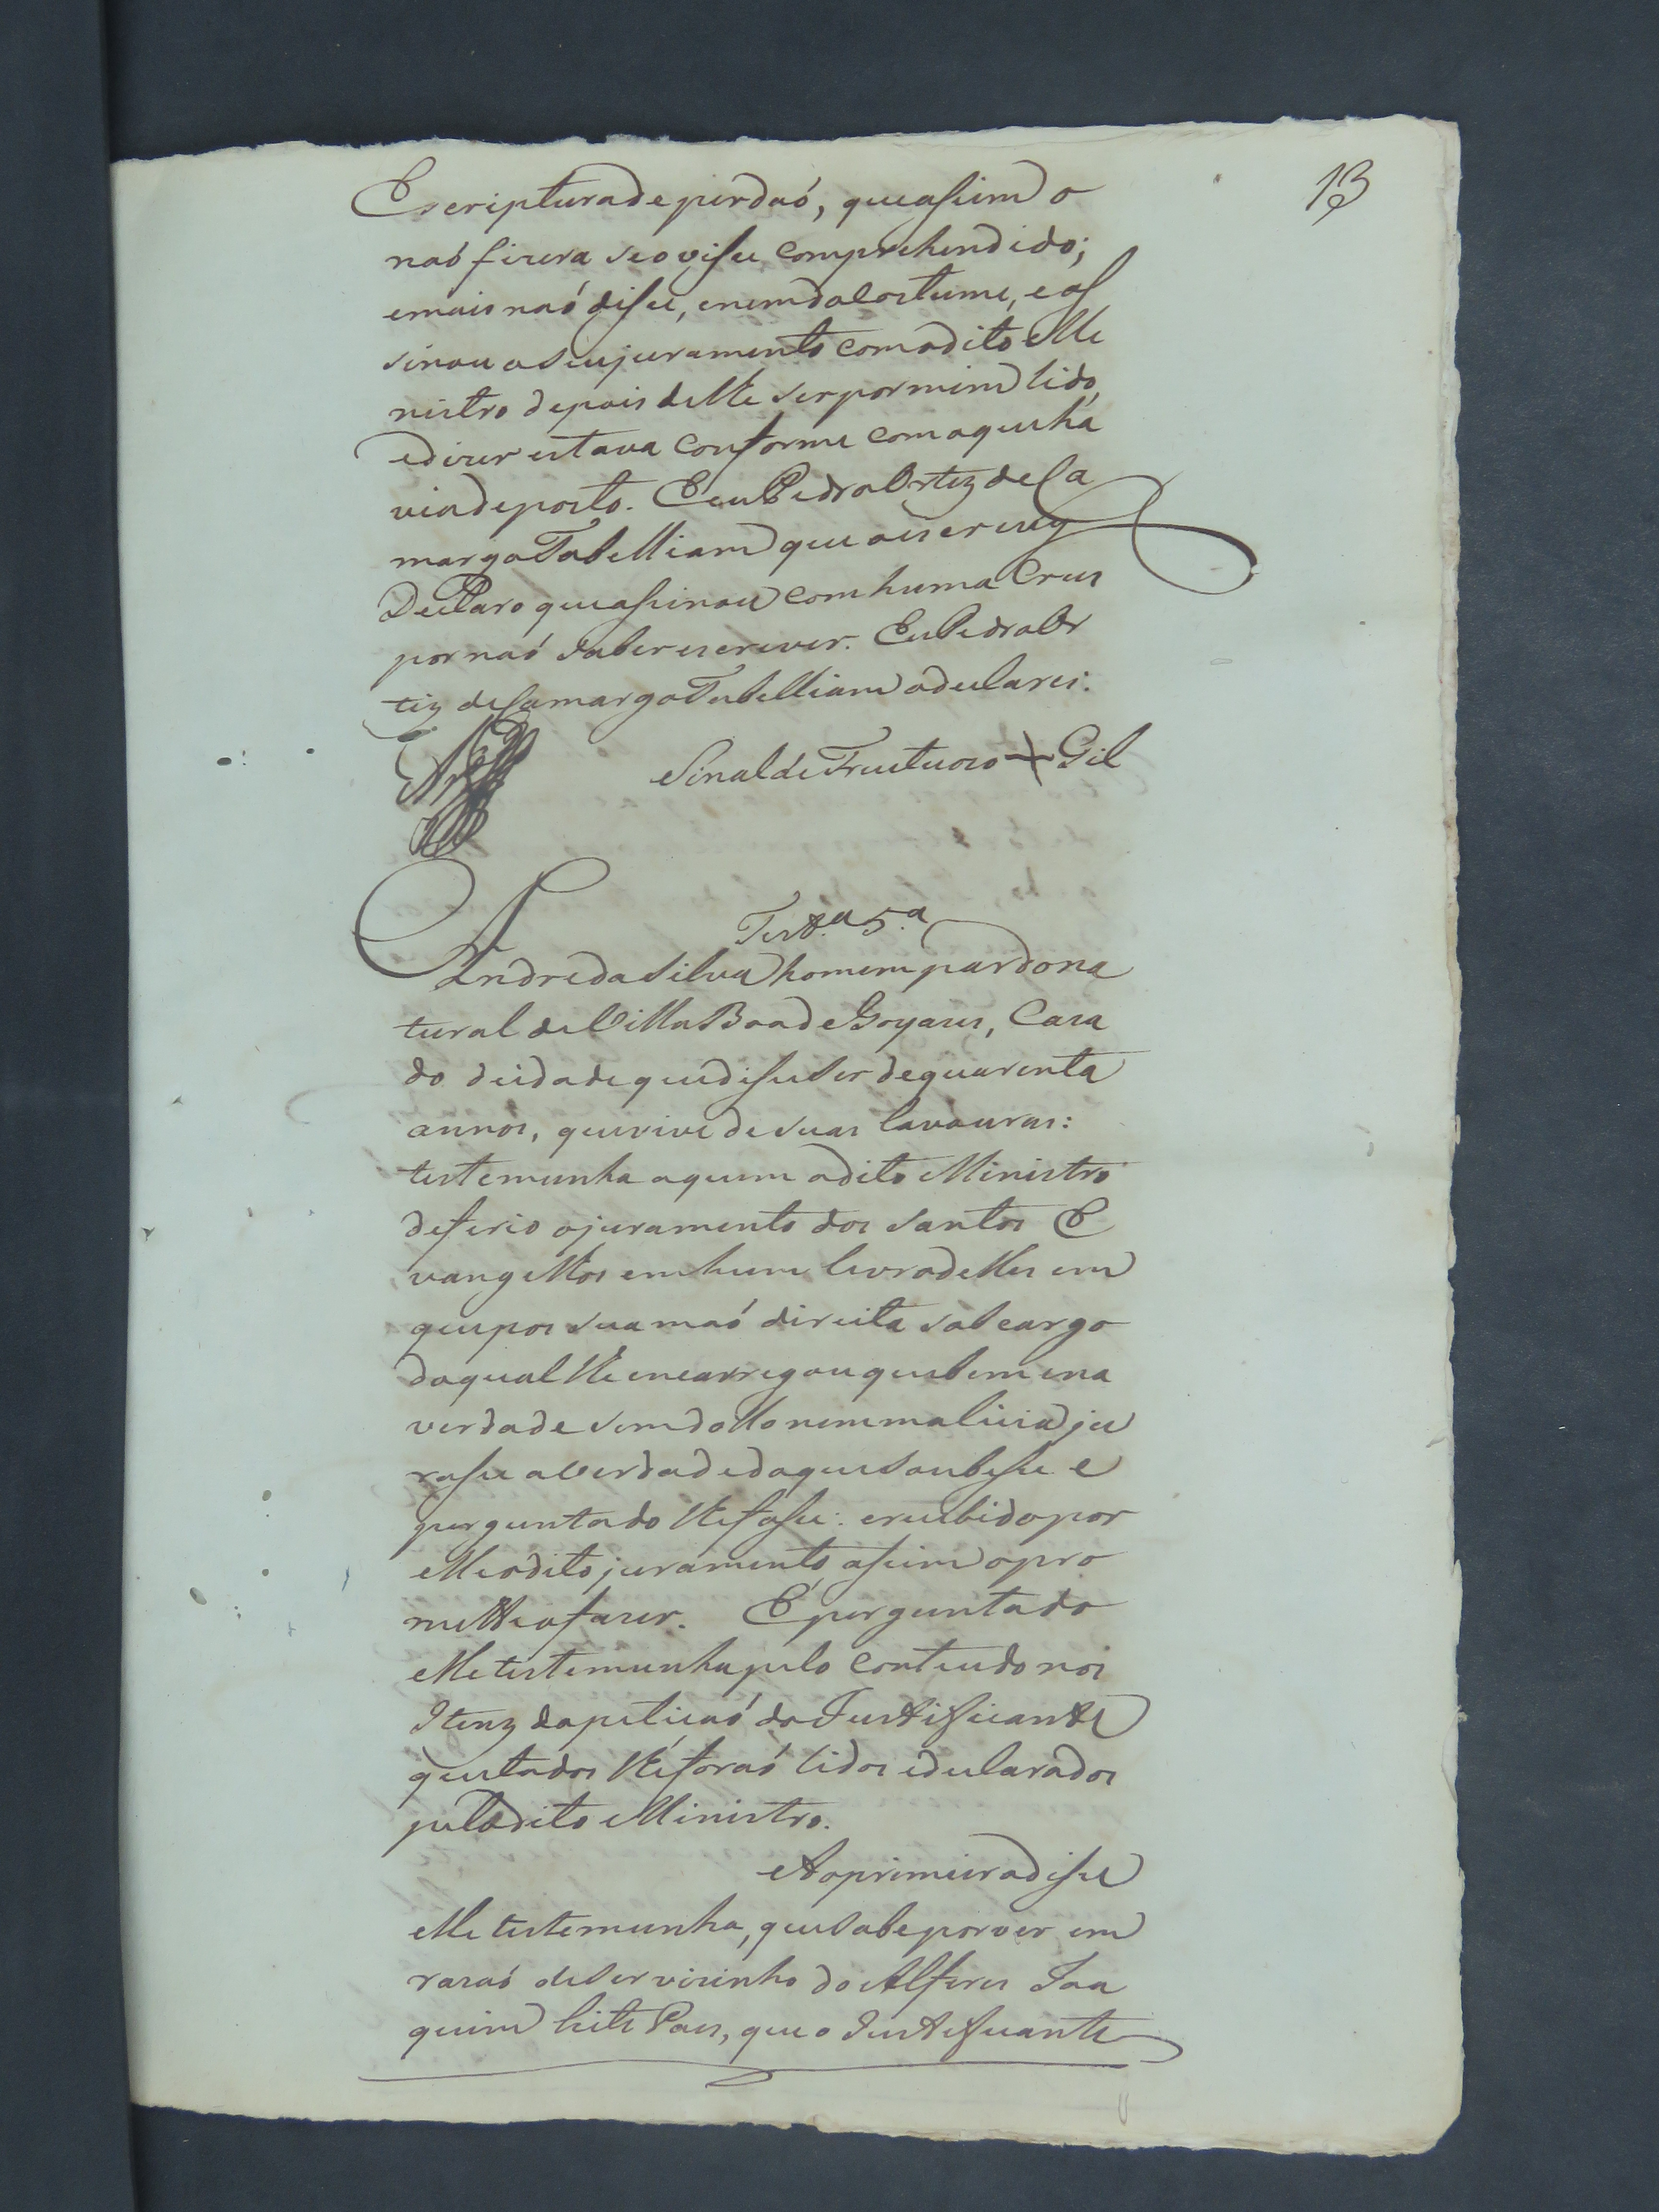 13
Escriptura de perdaó, que assim o
naó fizera se o visse comprehendido;
e mais naó disse, e nem do Costume, e as
sinou o seu juramento com o dito Me
nistro depois de lhe ser por mim lido,
e dizer estava Conforme com o que ha
via deposto. E eu Pedro Ortiz de Ca
margo Tabelliam que o escrevy
Declaro que assinou com huma Crus
por naó saber escrever. Eu Pedro Or
tiz de Camargo Tabelliam o declarei.
Sinal de Fructuoso + Gil
Test.ª 5.ª
Andre da Silva homem pardo na
tural de Villa Boa de Goyazes, Caza
do de idade que disse ser de quarenta
annos, que vive de suas lavouras:
testemunha a quem o dito Ministro
deferio o juramento dos Santos E
vangelhos em hum livro delles em
que pos sua maó direita sob cargo
do qual lhe encarregou que bem e na
verdade sem dollo nem malicia ju
rasse a verdade do que soubesse e
perguntado lhe fosse: e recebido por
elle o dito juramento, assim o pro
metteo fazer. E perguntado
elle testemunha pelo Conteudo nos
Itenz da peticaó do Justificante
que todos lhe foraó lidos e declarados
pelo dito Ministro.
Ao primeiro disse
elle testemunha, que sabe por ver em
razaó de ser vizinho do Alferes Joa
quim Leite Paes, que o Justificante